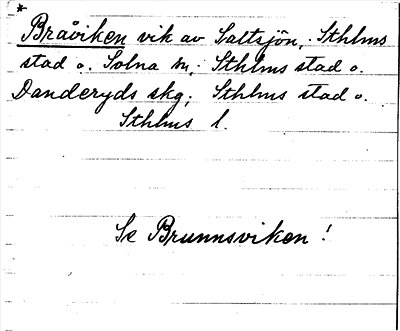 *
Bråviken vik av Saltsjön, Sthlms
stad o. Solna sn; Sthlms stad o.
Danderyds skg; Sthlms stad o.
Sthlms l.
Se Brunnsviken!